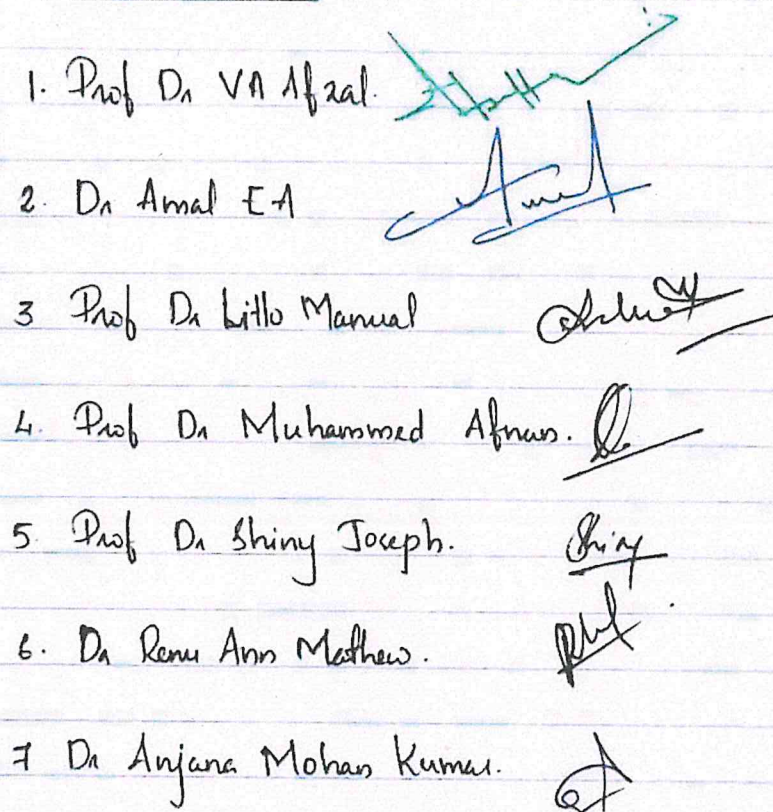 1. Prof Dr VA Afzal.
2. Dr Amal E A
3 Prof Dr Litto Manual
4. Prof Dr Muhammed Afnan.
5. Prof Dr Shiny Joseph. Shiny
6. Dr Renu Ann Mathew.
7 Dr Anjana Mohan Kumar.